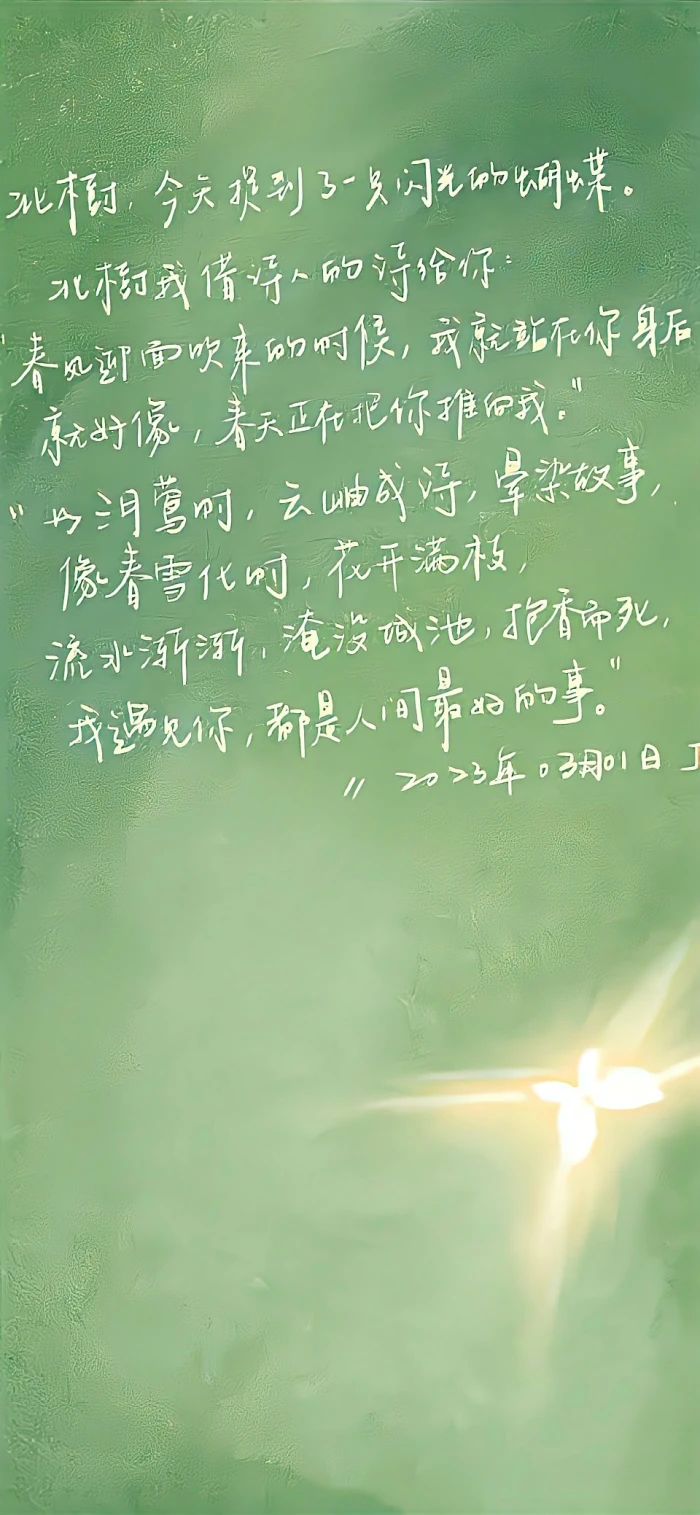 北樹，今天捉到了一只闪光的蝴蝶。
北樹我借诗人的诗给你：
"春风迎面吹来的时候，我就站在你身后
就好像，春天正在把你推向我。"
"如月莺时，云岫成诗，晕染故事，
像春雪化时，花开满枝，
流水渐渐，淹没城池，抱香而死，
我遇见你，都是人间最好的事。"
〃 2023年03月01日 J